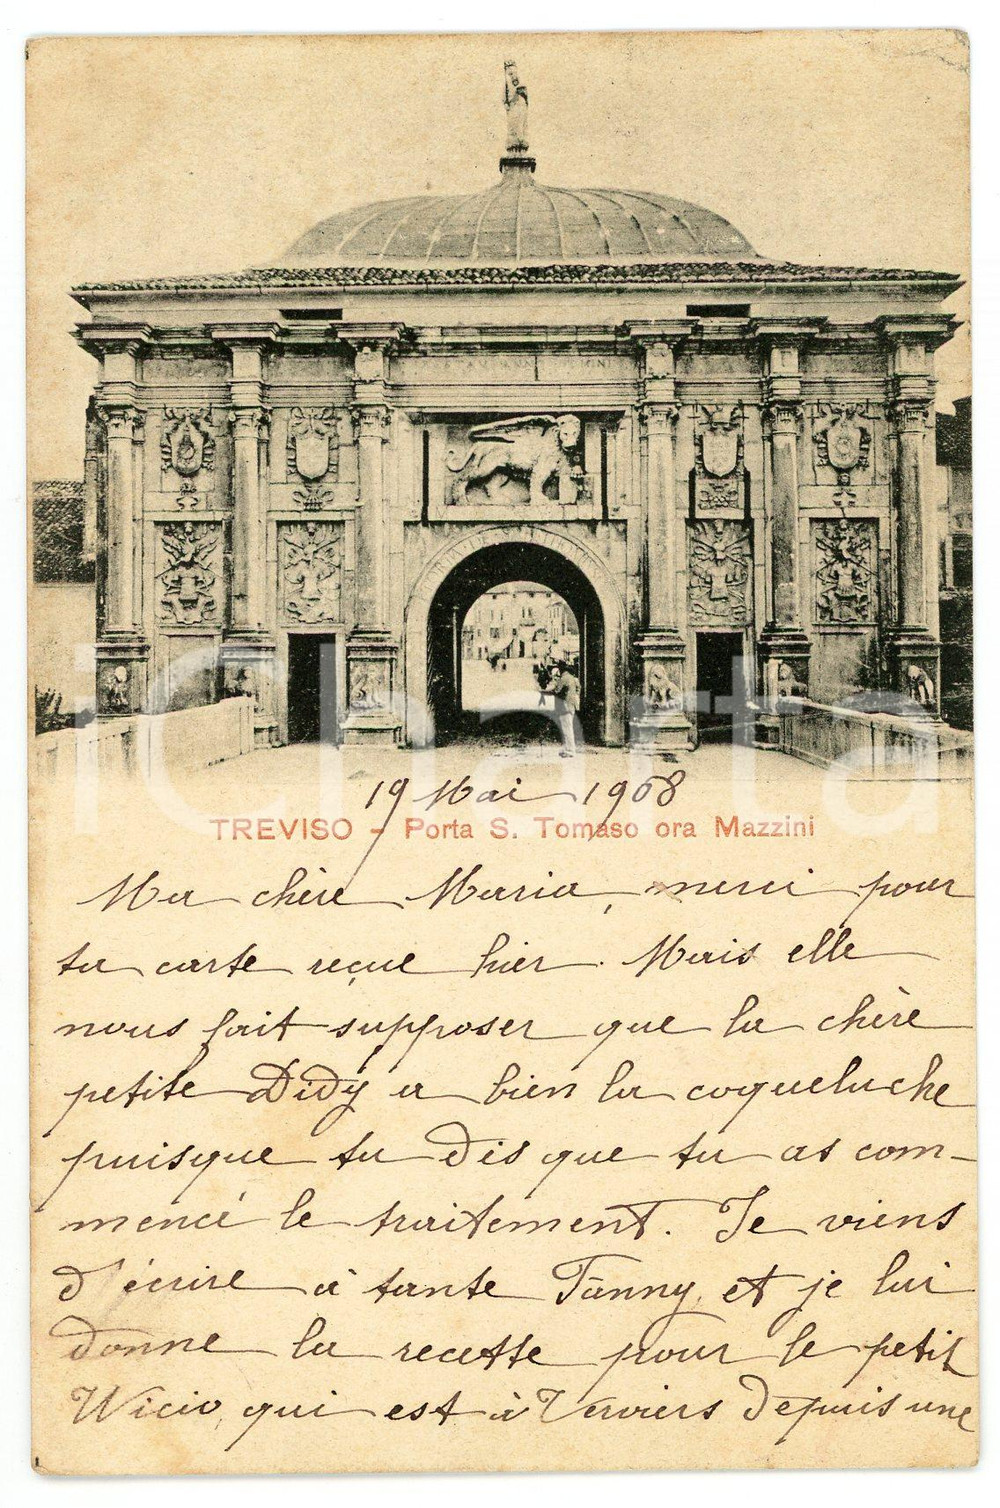 19 Mai 1908
TREVISO - Porta S. Tomaso ora Mazzini
iCharta
Ma chère Maria, merci pour
ta carte reçue hier. Mais elle
nous fait supposer que la chère
petite Didy a bien la coqueluche
puisque tu dis que tu as com-
mencé le traitement. Je viens
d'écrire à tante Fanny, et je lui
donne la recette pour le petit
Wicio, qui est à Verviers depuis une